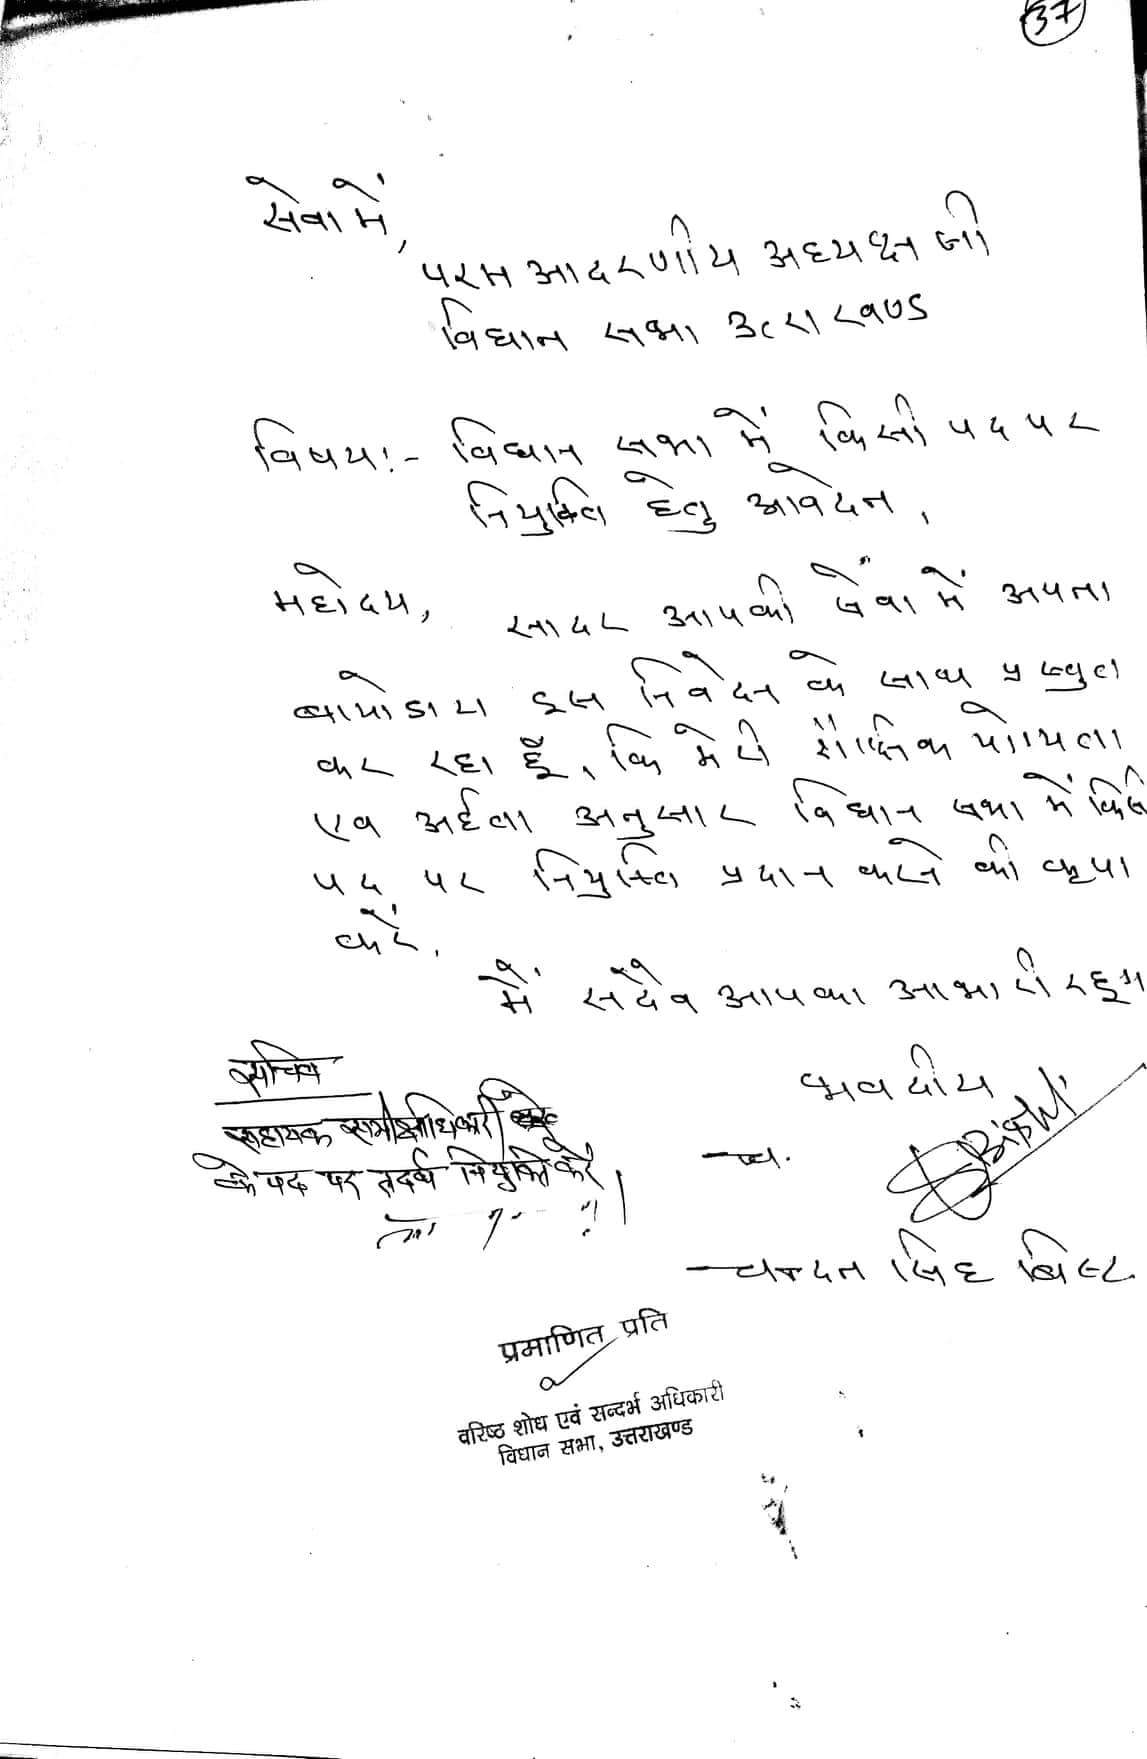 37
सेवा में,
परम आदरणीय अध्यक्ष जी
विधान सभा उत्तराखण्ड
विषय:- विधान सभा में किसी पद पर
नियुक्ति हेतु आवेदन,
महोदय, सादर आपकी सेवा में अपना
बायोडाटा इस निवेदन के साथ प्रस्तुत
कर रहा हूँ, कि मेरी शैक्षिक योग्यता
एव अर्हता अनुसार विधान सभा में
पद पर नियुक्ति प्रदान करने की कृपा
करें,
मैं सदैव आपका आभारी
भवदीय
सचिव
सहायक समीक्षाधिकारी
Bisht
के पद पर तदर्थ नियुक्ति करें
चन्दन सिंह बिष्ट
प्रमाणित प्रति
वरिष्ठ शोध एवं सन्दर्भ अधिकारी
विधान सभा, उत्तराखण्ड